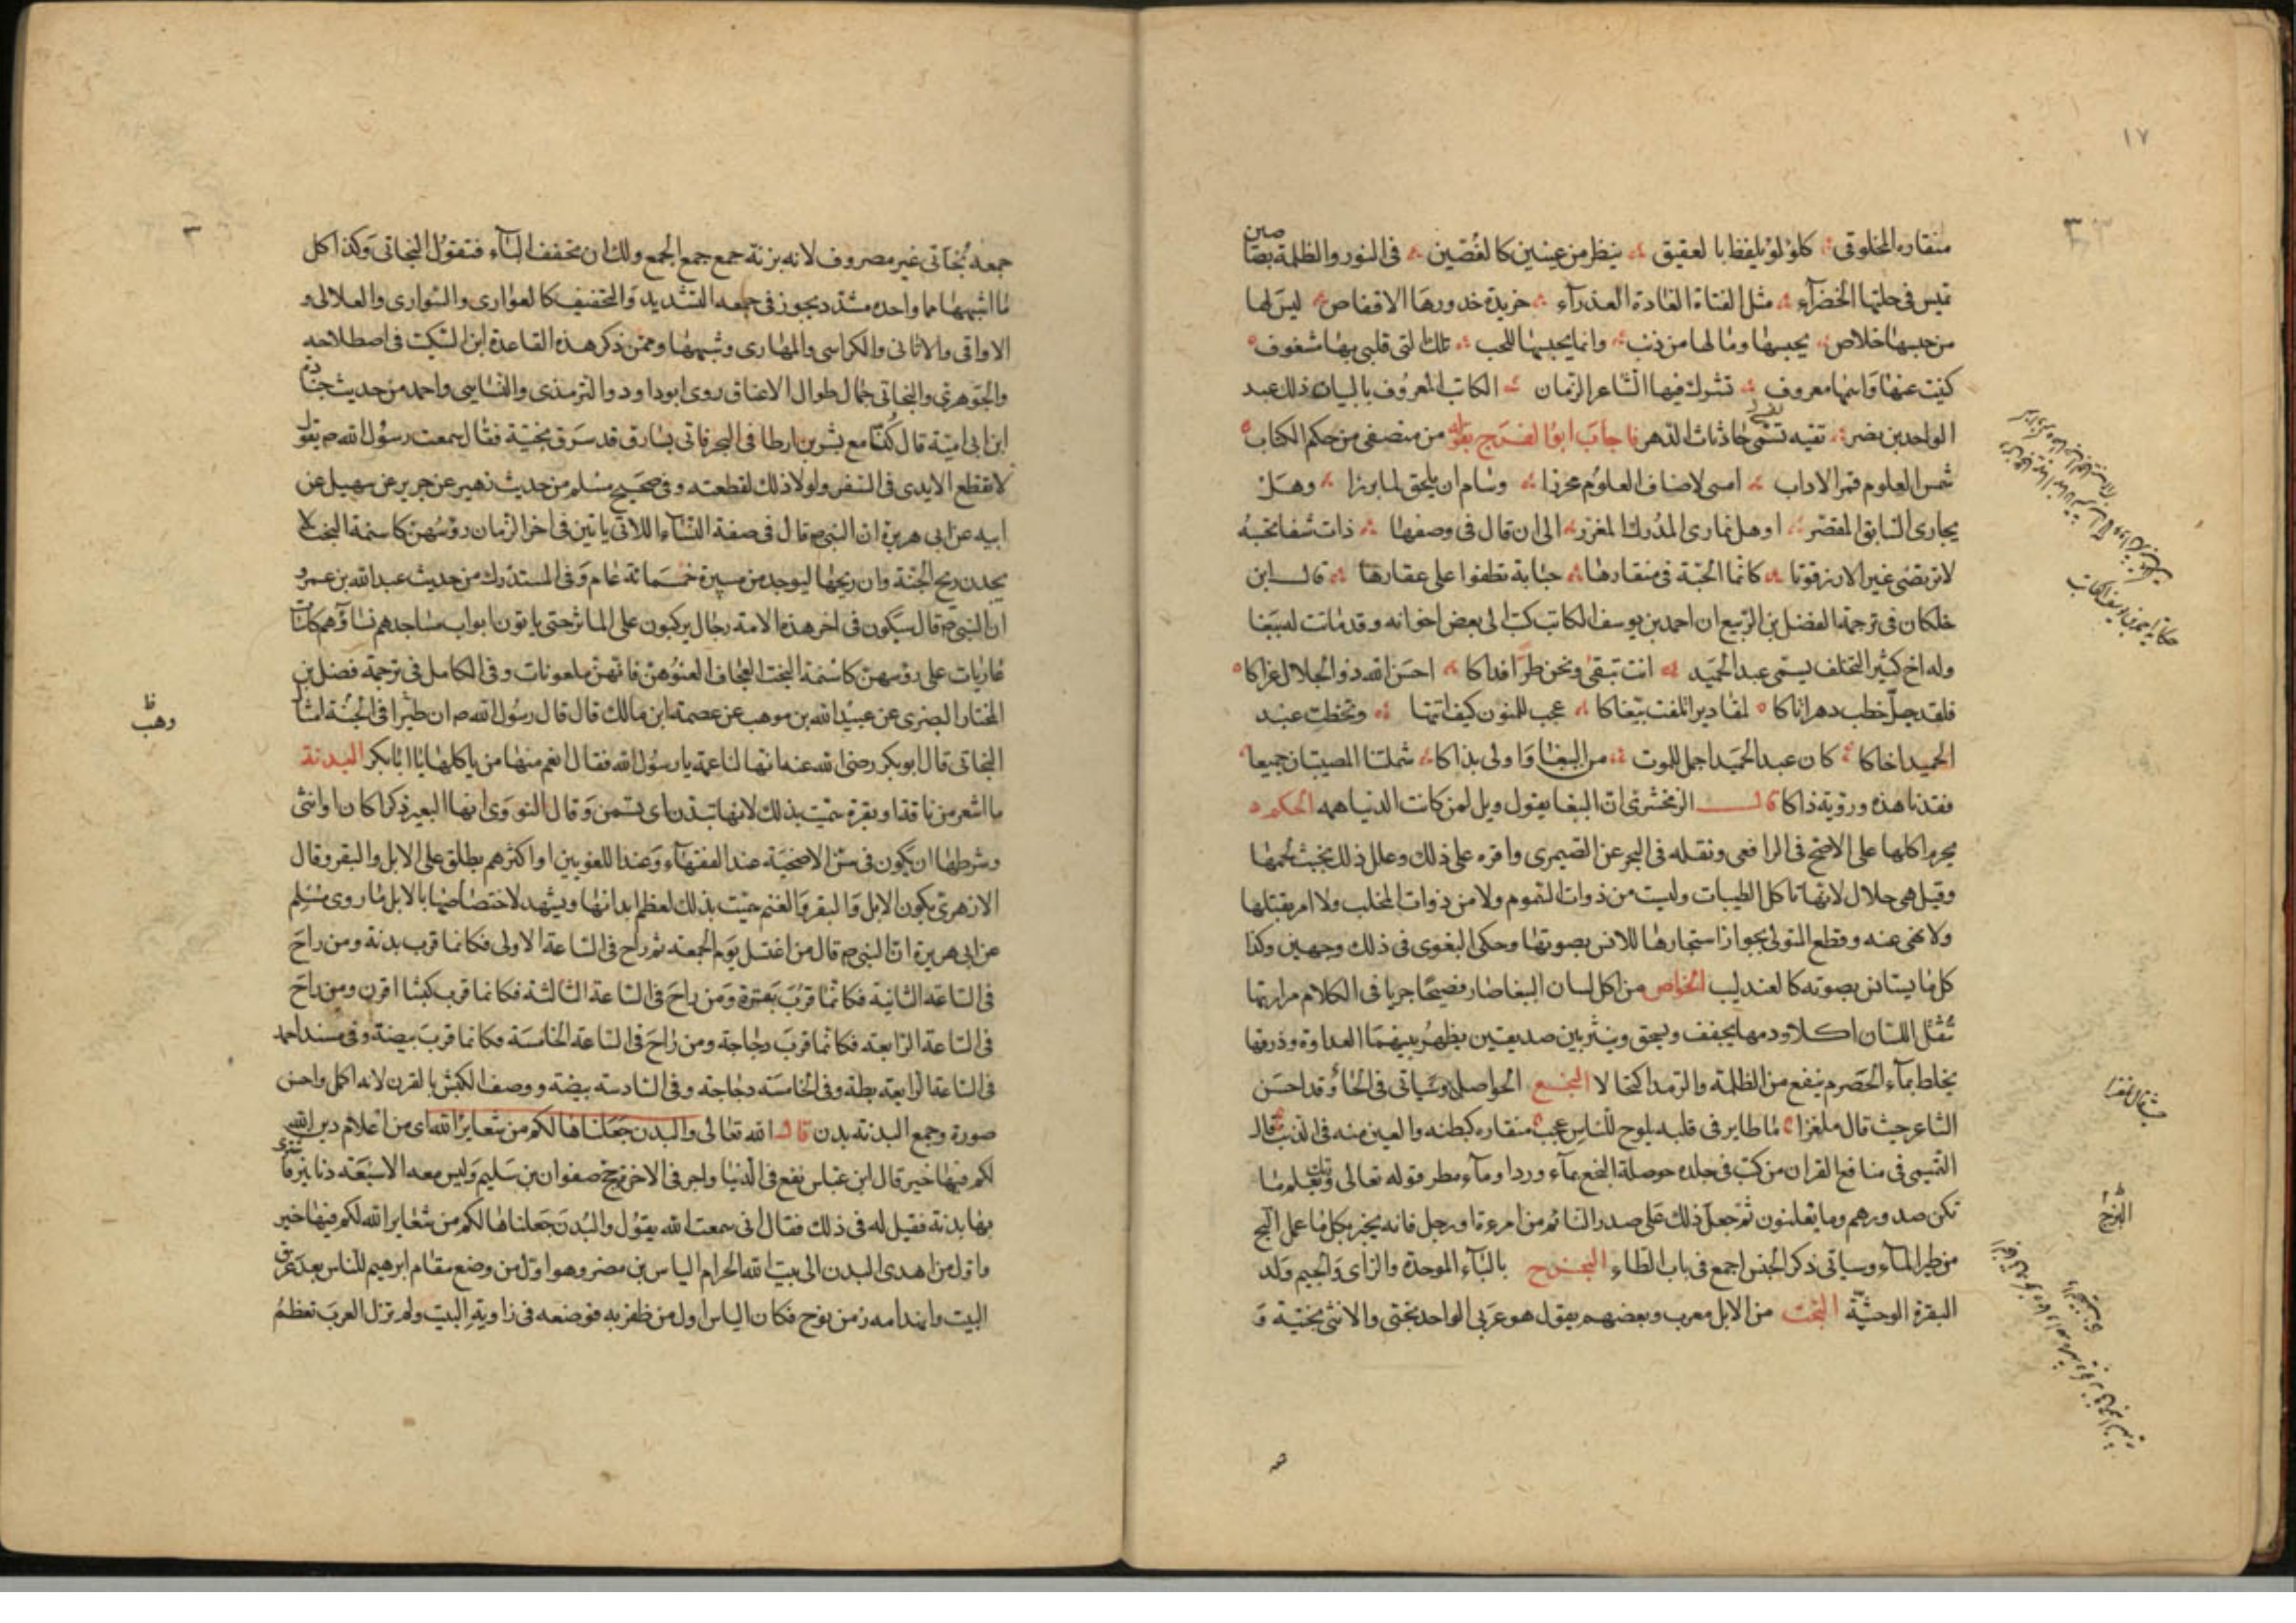 ١٧
منقاره المخلوقى كلؤلؤ يلفظ بالعقيق ينظر من عينين كالفصين فى النور والظلمة بصاصين
تميس فى حلتها الخضرآء مثل الفتاة الغادة العذرآء خريدة خدورها الاقفاص ليس لها
من حبسها خلاص يحبسها وما لها من ذنب وانما يحبسها للحب تلك التى قلبى بها شغوف
كنيت عنها واسمها معروف تشرك فيها الشاعر الزمان الكاتب المعروف بالبيان ذلك عبد
الواحد بن نصر تقيه نفسى حاذثات الدهر فاجاب ابو الفرج بقوله من منصفى من حكم الكتاب
شمس العلوم قمر الاداب امسى لاصناف العلوم محرزا وسام ان يلحق لما برزا وهل
يجارى السابق المقصر او هل تمارى المدرك المغزر الى ان قال فى وصفها ذات شفا تخبه
لا ترتضى غير الارز قوتا كانما الحبة فى منقارها حبابة تطفوا على عقارها قال ابن
خلكان فى ترجمة الفضل بن الربيع ان احمد بن يوسف الكاتب كتب الى بعض اخوانه وقد ماتت له ببغا
وله اخ كثير التخلف يسمى عبد الحميد انت تبقى ونحن طرا فداكا احسن الله ذو الجلال عزاكا
فلقد جل خطب دهر اتاكا لمقادير اتلفت ببغاكا عجب للمنون كيف اتتها وتخطت عبد
الحميد اخاكا كان عبد الحميد اجمل للموت من الببغا واولى بذاكا شملتنا المصيبتان جميعا
فقدنا هذه ورؤية ذاكا قال الزمخشرى ان الببغا يقول ويل لمن كانت الدنيا همه الحكم
يحرم اكلها على الاصح فى الرافعى ونقله فى البحر عن الصيمرى واقره على ذلك وعلل ذلك بخبث لحمها
وقيل هى حلال لانها تاكل الطيبات وليست من ذوات السموم ولا من ذوات المخلب ولا امر بقتلها
ولا نهى عنه وقطع المتولى بجواز استجارها للانس بصوتها وحكى البغوى فى ذلك وجهين وكذا
كل ما يستانس بصوته كالعندليب الخواص من اكل لسان الببغا صار فصيحا جريا فى الكلام مرارتها
تثقل اللسان اكلا ودمها يجفف ويسحق وينثر بين صديقين يظهر بينهما العداوة وذرقها
يخلط بمآء الحصرم ينفع من الظلمة والرمد اكتحالا البجع الحواصل وسياتى فى الحا وقد احسن
الشاعر حيث قال ملغزا ما طاير فى قلبه يلوح للناس عجب منقاره كبطنه والعين منه فى الذنب قال
التميمى فى منافع القران من كتب فى جلده حوصلة البجع بمآء وردا ومآء مطر قوله تعالى وربك يعلم ما
تكن صدورهم وما يعلنون ثم جعل ذلك على صدر النائم من امرءة او رجل فانه يخبر بكل ما عمل البج
من طير المآء وسياتى ذكر الجنس اجمع فى باب الطاء البخزج بالبآء الموحدة والزاى والجيم ولد
البقرة الوحشية البخت من الابل معرب وبعضهم يقول هو عربى الواحد بختى والانثى بختية و
حكاية احمد بن يوسف الكاتب
البحزج
جمعه بخاتى غير مصروف لانه بزنة جمع جمع الجمع ولك ان تخفف اليآء فتقول البخاتى وكذا كل
ما اشبهها مما واحده مشدد يجوز فى جمعه التشديد والتخفيف كالعوارى والسوارى والعلالى و
الاواقى والاثانى والكراسى والمهارى وشبهها وممن ذكر هذه القاعدة ابن السكيت فى اصطلاحه
والجوهرى والبخاتى جمال طوال الاعناق روى ابو داود والترمذى والنسايى واحمد من حديث جنادة
ابن ابى امية قال كنا مع بشر بن ارطا فى البحر فاتى بسارق قد سرق بختية فقال سمعت رسول الله ص يقول
لا تقطع الايدى فى السفر ولولا ذلك لقطعته وفى صحيح مسلم من حديث زهير عن جرير عن سهيل عن
ابيه عن ابى هريرة ان النبى ص قال فى صفة النسآء اللاتى ياتين فى اخر الزمان رؤسهن كاسنمة البخت لا
يجدن ريح الجنة وان ريحها ليوجد من مسيرة خمسمائة عام وفى المستدرك من حديث عبد الله بن عمرو
ان النبى ص قال سيكون فى اخر هذه الامة رجال يركبون على المياثر حتى ياتون ابواب مساجدهم نساؤهم كاسيات
عاريات على رؤسهن كاسنمة البخت العجاف العنوهن فانهن ملعونات وفى الكامل فى ترجمة فضل بن
المختار البصرى عن عبيد الله بن موهب عن عصمة ابن مالك قال قال رسول الله ص ان طيرا فى الجنة امثال
البخاتى قال ابو بكر رضى الله عنه انها لناعمة يا رسول الله فقال انعم منها من ياكلها يا ابا بكر البدنة
ما اشعر من ناقة او بقرة سميت بذلك لانها تبدن اى تسمن وقال النووى انها البعير ذكرا كان او انثى
وشرطها ان يكون فى سن الاضحية عند الفقهآء وعند اللغويين او اكثرهم يطلق على الابل والبقر وقال
الازهرى يكون الابل والبقر والغنم سميت بذلك لعظم ابدانها ويشهد لاختصاصها بالابل ما روى مسلم
عن ابى هريرة ان النبى ص قال من اغتسل يوم الجمعة ثم راح فى الساعة الاولى فكانما قرب بدنة ومن راح
فى الساعة الثانية فكانما قرب بقرة ومن راح فى الساعة الثالثة فكانما قرب كبشا اقرن ومن راح
فى الساعة الرابعة فكانما قرب دجاجة ومن راح فى الساعة الخامسة فكانما قرب بيضة وفى مسند احمد
فى الساعة الرابعة بطة وفى الخامسة دجاجة وفى السادسة بيضة ووصف الكبش بالقرن لانه اكمل واحسن
صورة وجمع البدنة بدن قال الله تعالى والبدن جعلناها لكم من شعاير الله اى من اعلام دين الله
لكم فيها خير قال ابن عباس نفع فى الدنيا واجر فى الاخرة حج صفوان بن سليم وليس معه الا سبعة دنانير فاشترى
بها بدنة فقيل له فى ذلك فقال انى سمعت الله يقول والبدن جعلناها لكم من شعاير الله لكم فيها خير
واول من اهدى البدن الى بيت الله الحرام الياس بن مضر وهو اول من وضع مقام ابرهيم للناس بعد غرق
البيت وانهدامه زمن نوح فكان الياس اول من ظفر به فوضعه فى زاوية البيت ولم تزل العرب تعظم
وهب